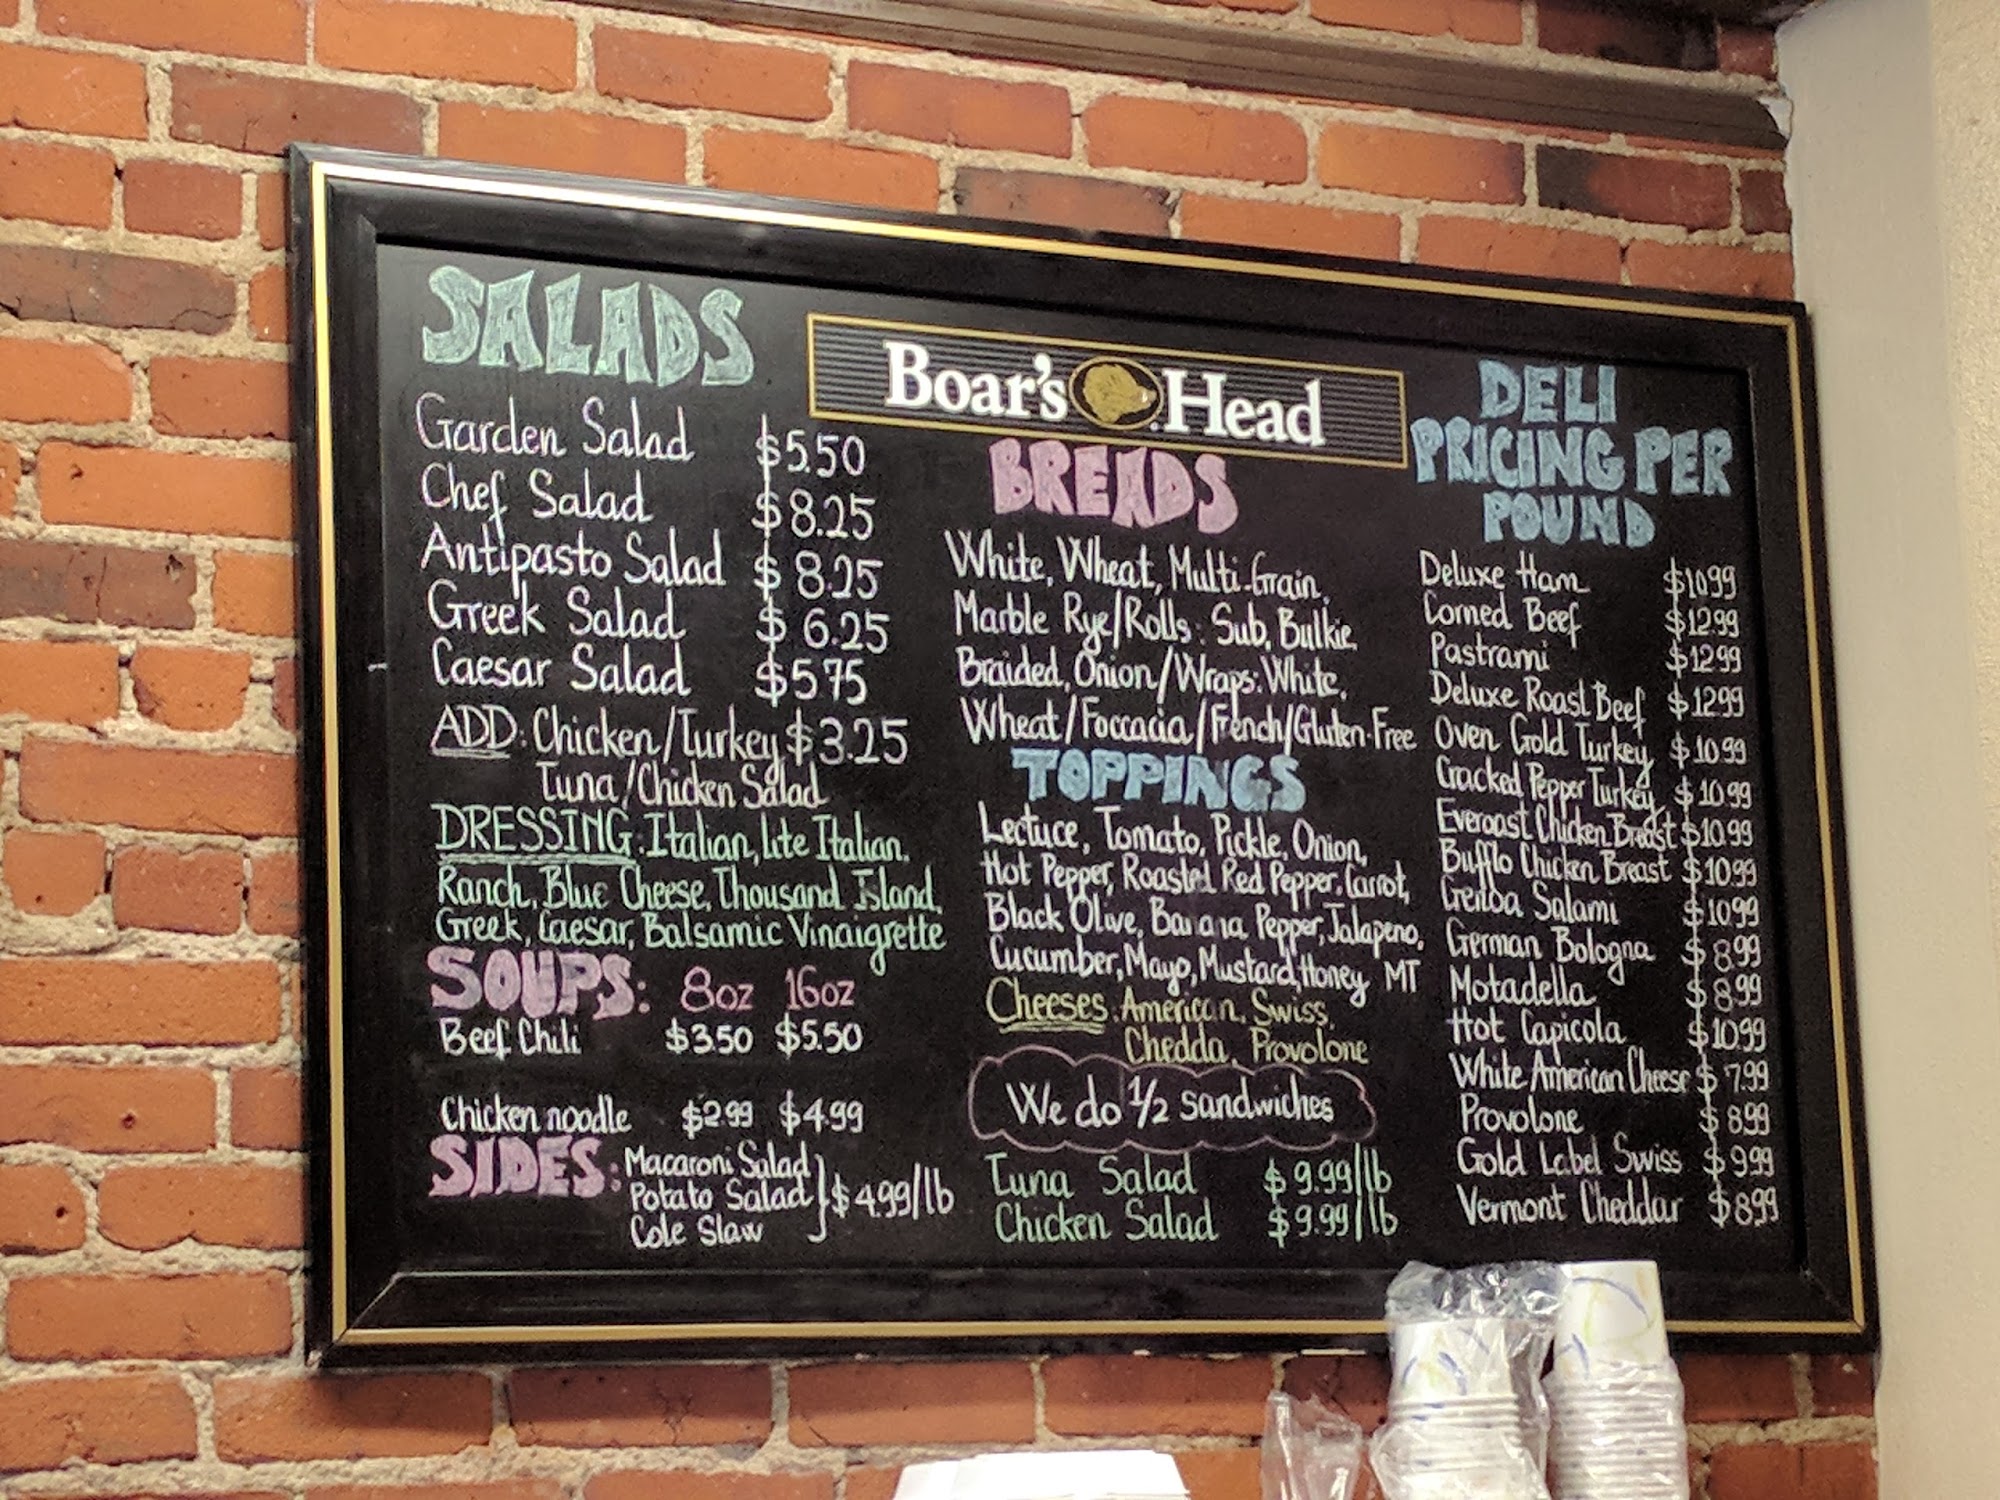 SALADS
Garden Salad $5.50
Chef Salad $8.25
Antipasto Salad $8.25
Greek Salad $6.25
Caesar Salad $5.75
ADD: Chicken/Turkey $3.25
Tuna/Chicken Salad
DRESSING: Italian, Lite Italian,
Ranch, Blue Cheese, Thousand Island,
Greek, Caesar, Balsamic Vinaigrette
SOUPS: 8oz 16oz
Beef Chili $3.50 $5.50
Chicken noodle $2.99 $4.99
SIDES: Macaroni Salad
Potato Salad $4.99/lb
Cole Slaw
Boar's Head
BREADS
White, Wheat, Multi-Grain,
Marble Rye/Rolls: Sub, Bulkie,
Braided, Onion/Wraps: White,
Wheat/Foccacia/French/Gluten-Free
TOPPINGS
Lectuce, Tomato, Pickle, Onion,
Hot Pepper, Roasted Red Pepper, Carrot,
Black Olive, Banana Pepper, Jalapeno,
Cucumber, Mayo, Mustard, Honey MT
Cheeses: American, Swiss,
Chedda, Provolone
We do 1/2 sandwiches
Tuna Salad $9.99/lb
Chicken Salad $9.99/lb
DELI
PRICING PER
POUND
Deluxe Ham $10.99
Corned Beef $12.99
Pastrami $12.99
Deluxe Roast Beef $12.99
Oven Gold Turkey $10.99
Cracked Pepper Turkey $10.99
Everoast Chicken Breast $10.99
Bufflo Chicken Breast $10.99
Genoa Salami $10.99
German Bologna $8.99
Motadella $8.99
Hot Capicola $10.99
White American Cheese $7.99
Provolone $8.99
Gold Label Swiss $9.99
Vermont Cheddar $8.99